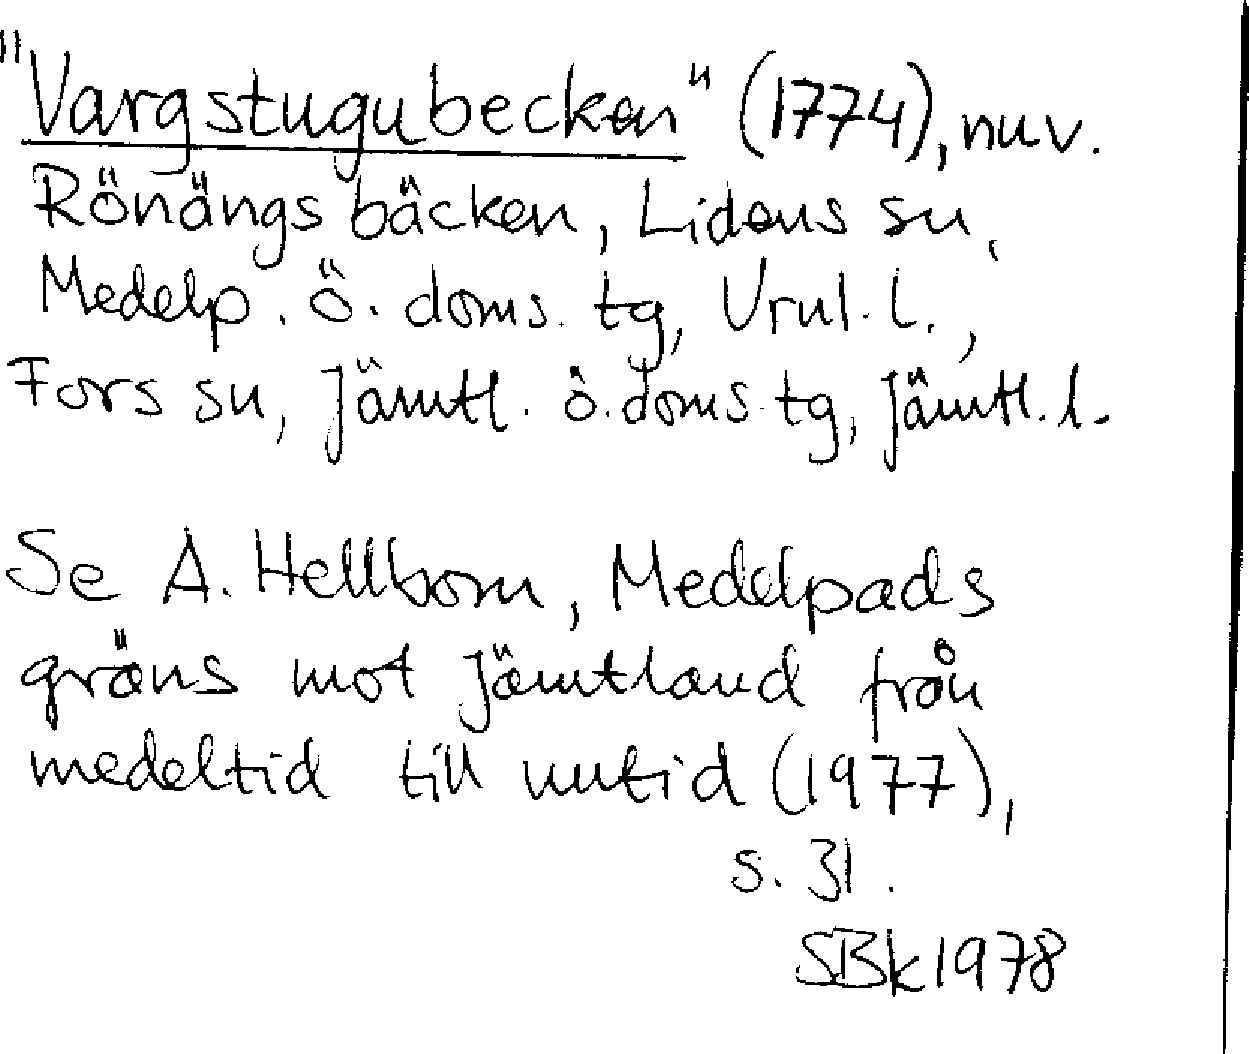 "Vargstugubecken" (1774), nuv.
Rönängsbäcken, Lidens sn,
Medelp. ö. doms. tg, Vnl. l.,
Fors sn, Jämtl. ö. doms. tg, Jämtl. l.
Se A. Hellbom, Medelpads
gräns mot Jämtland från
medeltid till nutid (1977),
s. 31.
SBk 1978